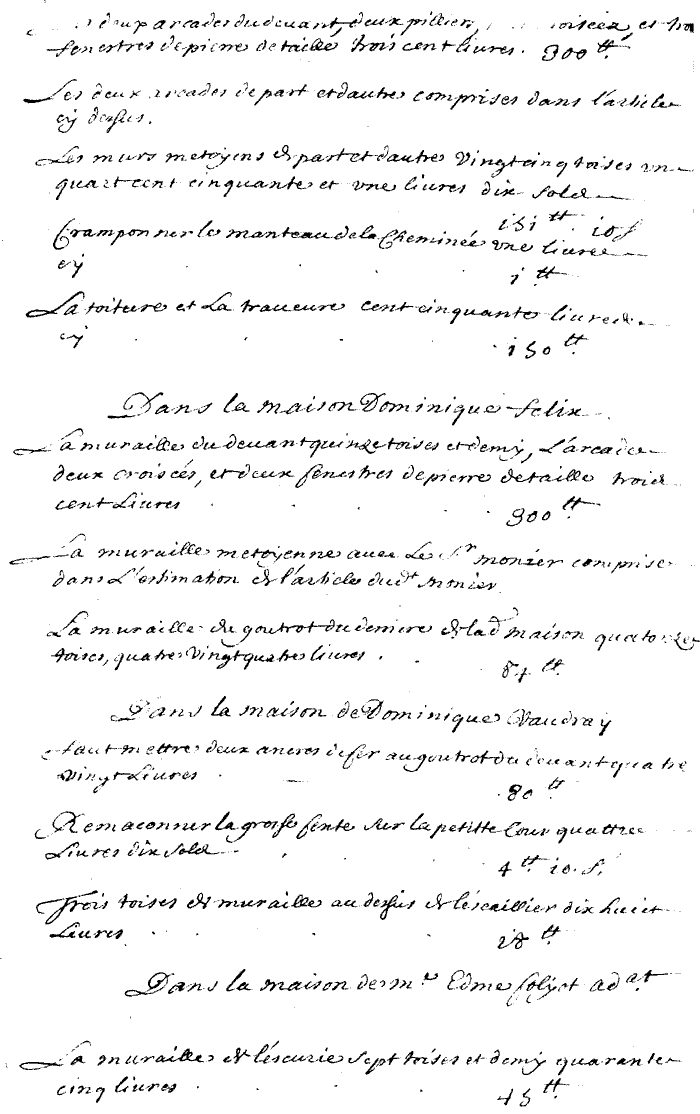 deux arcades du devant, deux pilliers, croisées, et trois
fenestres de pierre de taille trois cent livres. 300 tt.
Les deux arcades de part et dautre comprises dans l'article
cy dessus.
Les murs metoyens de part et dautre vingt cinq toises un
quart cent cinquante et une livres dix sols
151 tt 10 s
Cramponner le manteau de la Cheminée une livre
cy
1 tt
La toiture et La traveure cent cinquante livres
cy . . . 150 tt.
Dans la maison Dominique felix
La muraille du devant quinze toises et demy, L'arcade
deux croisées, et deux fenestres de pierre de taille trois
cent Livres . . . 300 tt.
La muraille metoyenne avec Le Sr monier comprise
dans L'estimation de l'article dudt monier
La muraille du goutrot du derriere de lad maison quatorze
toises, quatre vingt quatre livres . . 84 tt.
Dans la maison de Dominique Vaudray
faut mettre deux ancres de fer au goutrot du devant quatre
vingt Livres . . 80 tt
Remaconner la grosse fente sur la petitte Cour quattre
Livres dix sols . . 4 tt 10. s.
Trois toises de muraille au dessus de l'escaillier dix huict
Livres . . 18 tt
Dans la maison de mr Edme adat
La muraille de l'escurie sept toises et demy quarante
cinq livres . . 45 tt